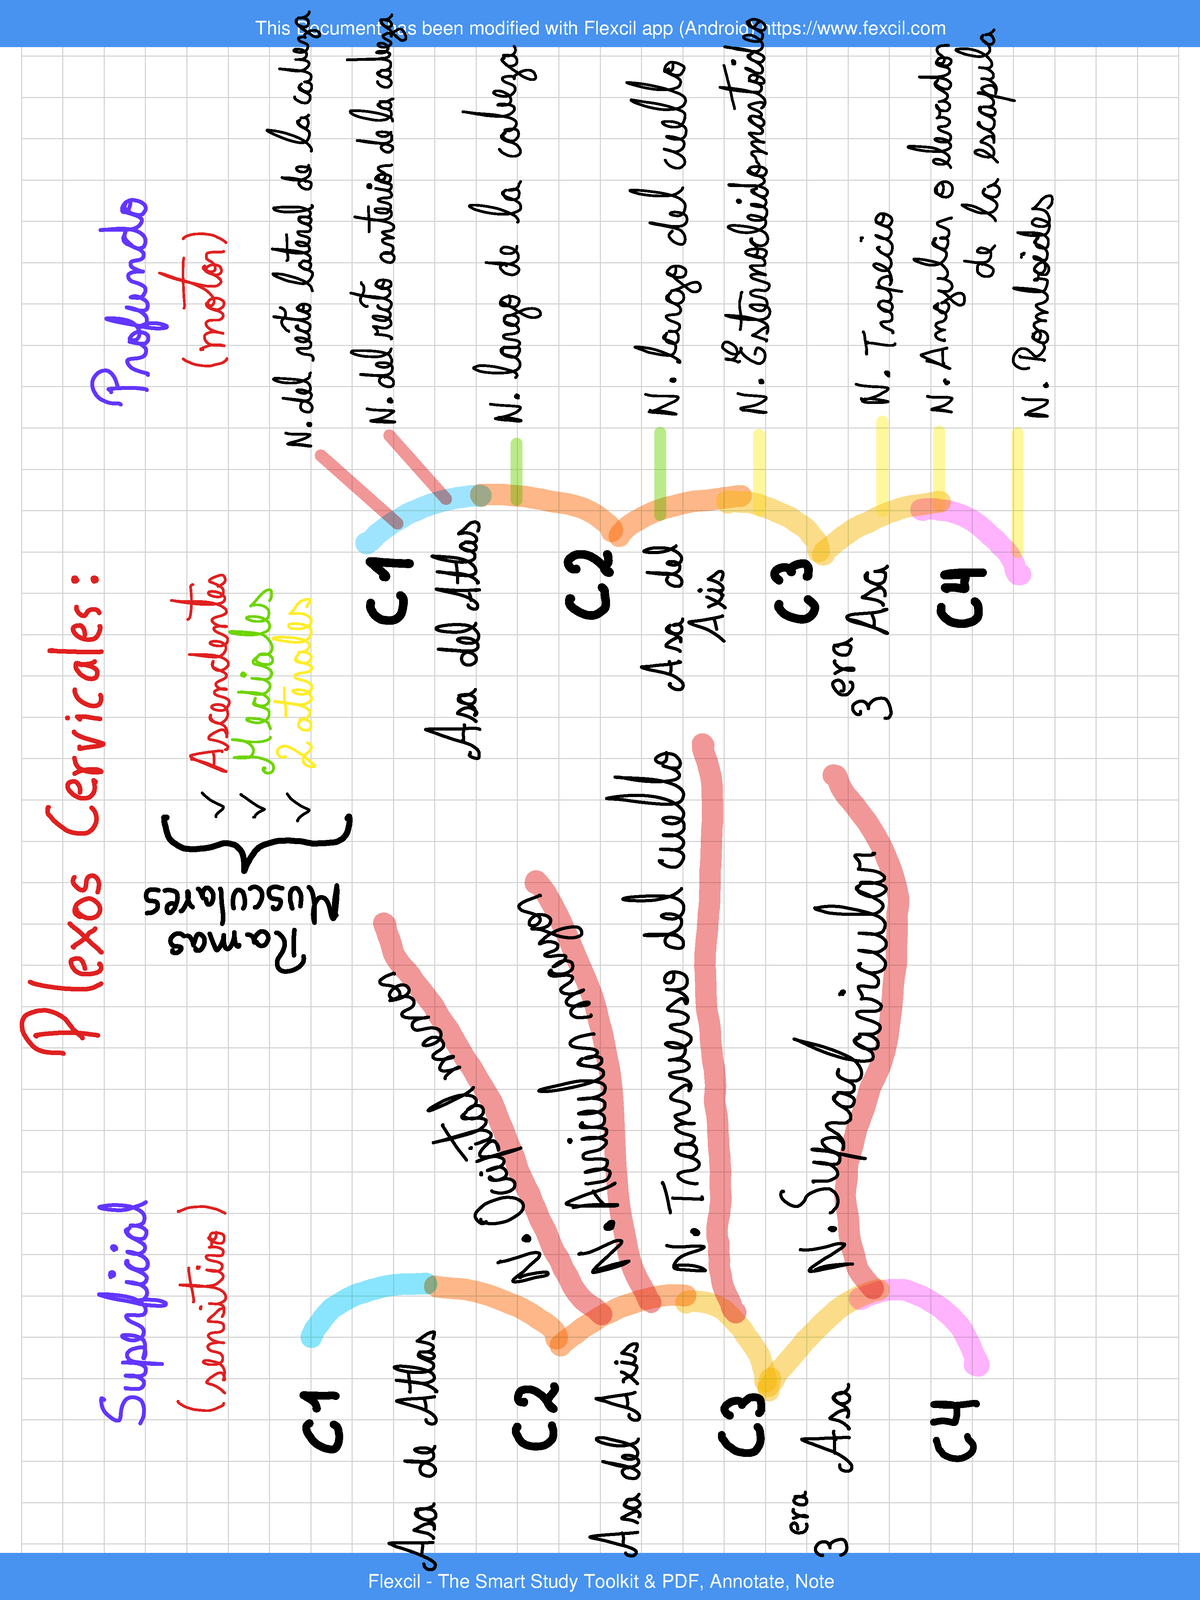 This Document has been modified with Flexcil app (Android) https://www.fexcil.com
Plexos Cervicales:
Ramas
Musculares
✓ Ascendentes
✓ Mediales
✓ Laterales
Superficial
(sensitivo)
C1
Asa de Atlas
C2
Asa del Axis
C3
3era Asa
C4
N. Occipital menor
N. Auricular mayor
N. Transverso del cuello
N. Supraclavicular
Profundo
(motor)
C1
Asa del Atlas
C2
Asa del
Axis
C3
3era Asa
C4
N. del recto lateral de la cabeza
N. del recto anterior de la cabeza
N. largo de la cabeza
N. largo del cuello
N. Esternocleidomastoideo
N. Trapecio
N. Angular o elevador
de la escapula
N. Romboides
Flexcil - The Smart Study Toolkit & PDF, Annotate, Note